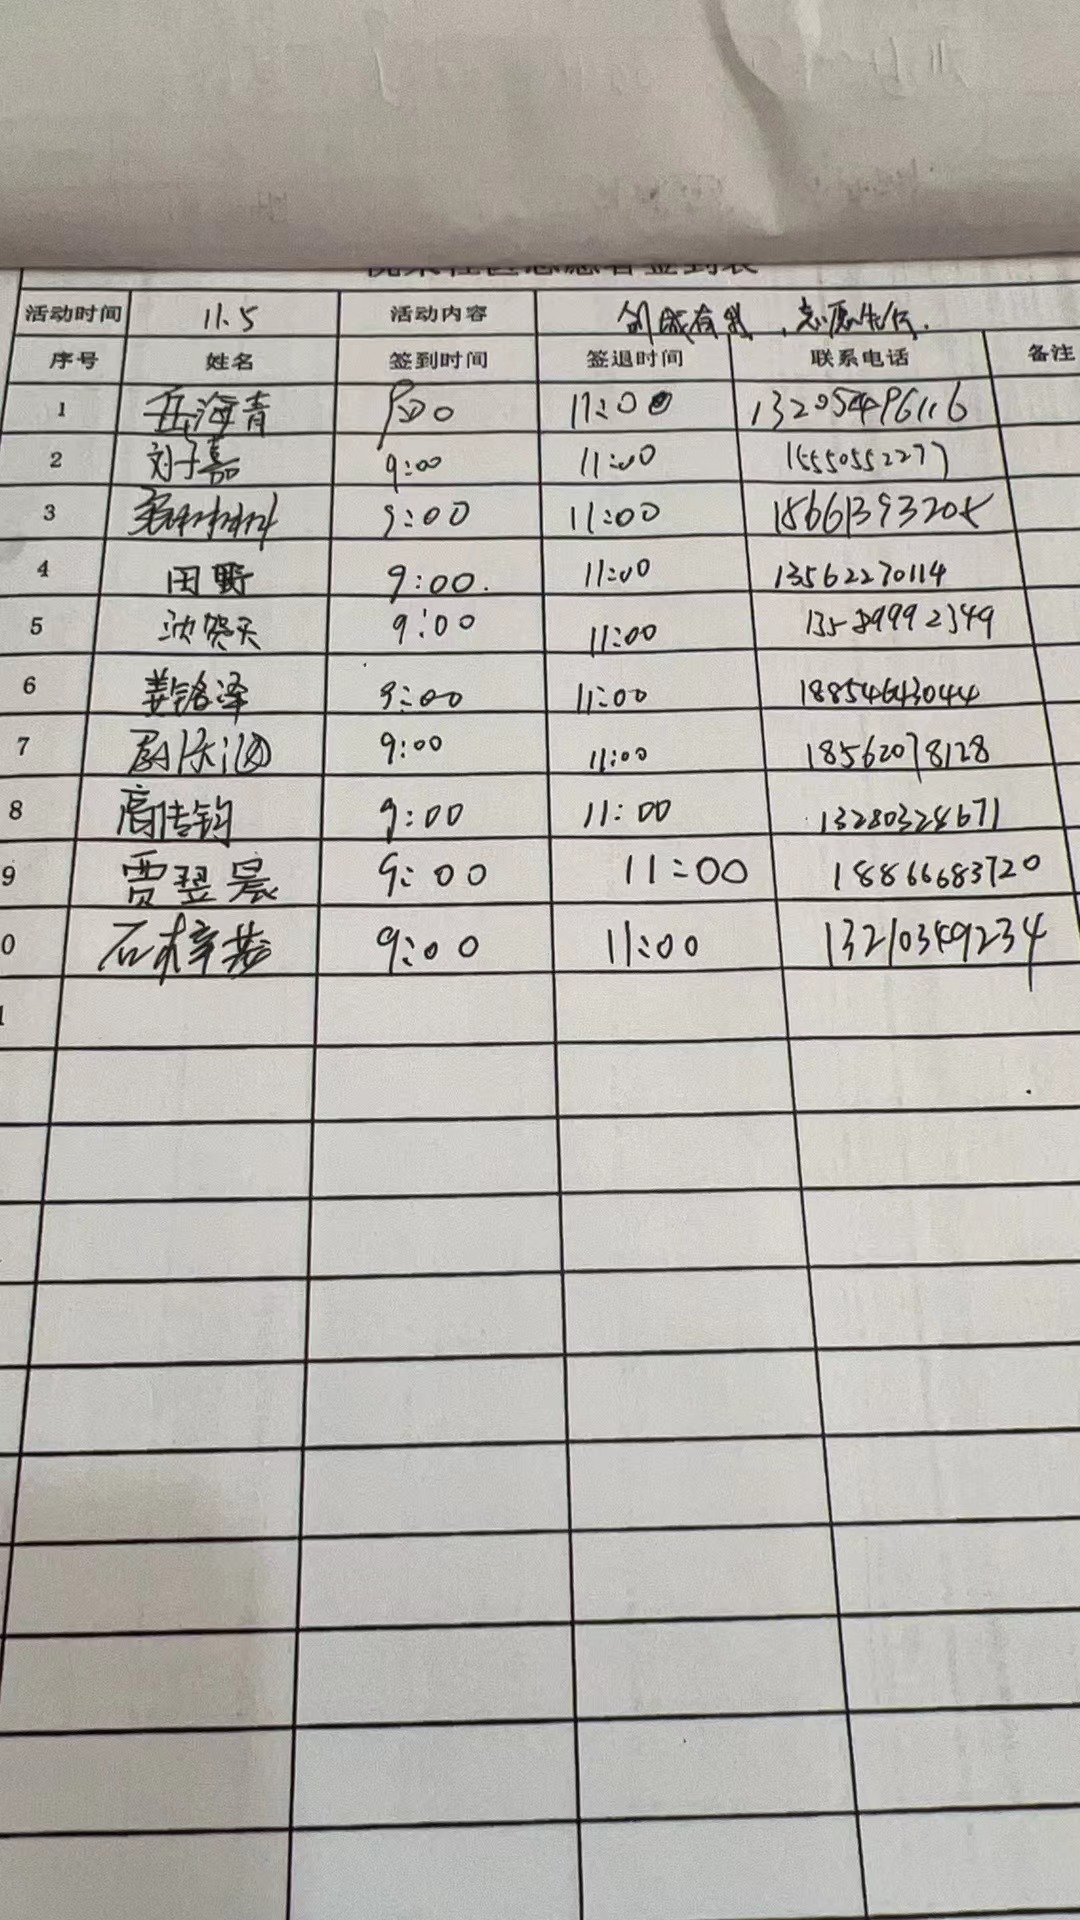 社区志愿者签到表
活动时间 11.5 活动内容 创城有我，志愿先行.
序号 姓名 签到时间 签退时间 联系电话 备注
1 岳海青 9:00 11:00 13205496116
2 刘子嘉 9:00 11:00 15550552277
3 9:00 11:00 15661393205
4 田野 9:00. 11:00 13562270114
5 沈贺天 9:00 11:00 13589992349
6 姜铭泽 9:00 11:00 18854643044
7 9:00 11:00 18562078128
8 高传钧 9:00 11:00 13280324671
9 贾翌晨 9:00 11:00 18866683720
0 石梓 9:00 11:00 13210349234
1